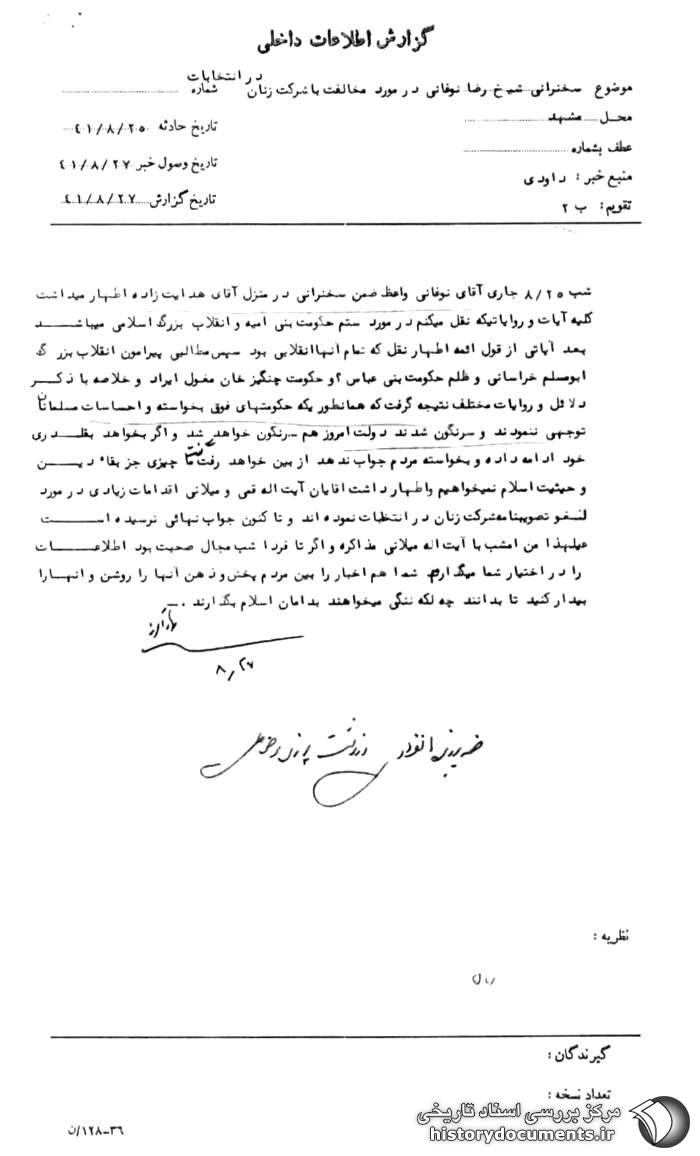 گزارش اطلاعات داخلی
در انتخابات
موضوع سخنرانی شیخ رضا نوغانی در مورد مخالفت با شرکت زنان شماره
محل مشهد
تاریخ حادثه ۴۱/۸/۲۵
عطف بشماره
تاریخ وصول خبر ۴۱/۸/۲۷
منبع خبر: داودی
تاریخ گزارش ۴۱/۸/۲۷
تقویم: ب ۲
شب ۸/۲۵ جاری آقای نوغانی واعظ ضمن سخنرانی در منزل آقای هدایت زاده اظهار میداشت
کلیه آیات و روایاتیکه نقل میکنم در مورد ستم حکومت بنی امیه و انقلاب بزرگ اسلامی میباشد
بعد آیاتی از قول ائمه اطهار نقل که تمام آنها انقلابی بود سپس مطالبی پیرامون انقلاب بزرگ
ابومسلم خراسانی و ظلم حکومت بنی عباس و حکومت چنگیز خان مغول ایراد و خلاصه با ذکر
دلائل و روایات مختلف نتیجه گرفت که همانطوریکه حکومتهای فوق بخواسته و احساسات مسلمانان
توجهی ننمودند و سرنگون شدند دولت امروز هم سرنگون خواهد شد و اگر بخواهد بقلدری
خود ادامه داده و بخواسته مردم جواب ندهد از بین خواهد رفت ما چیزی جز بقاء دین
و حیثیت اسلام نمیخواهیم واظهار داشت اقایان آیت اله قمی و میلانی اقدامات زیادی در مورد
لغو تصویبنامه شرکت زنان در انتخابات نموده اند و تا کنون جواب نهائی نرسیده است
علیهذا من امشب با آیت اله میلانی مذاکره و اگر تا فردا شب مجال صحبت بود اطلاعات
را در اختیار شما میگذارم شما هم اخبار را بین مردم پخش و ذهن آنها را روشن و انها را
بیدار کنید تا بدانند چه لکه ننگی میخواهند بدامان اسلام بگذارند .
۸/۲۷
نظریه:
گیرندگان:
تعداد نسخه:
۳۶-۱۲۸/ن
مرکز بررسی اسناد تاریخی
historydocuments.ir